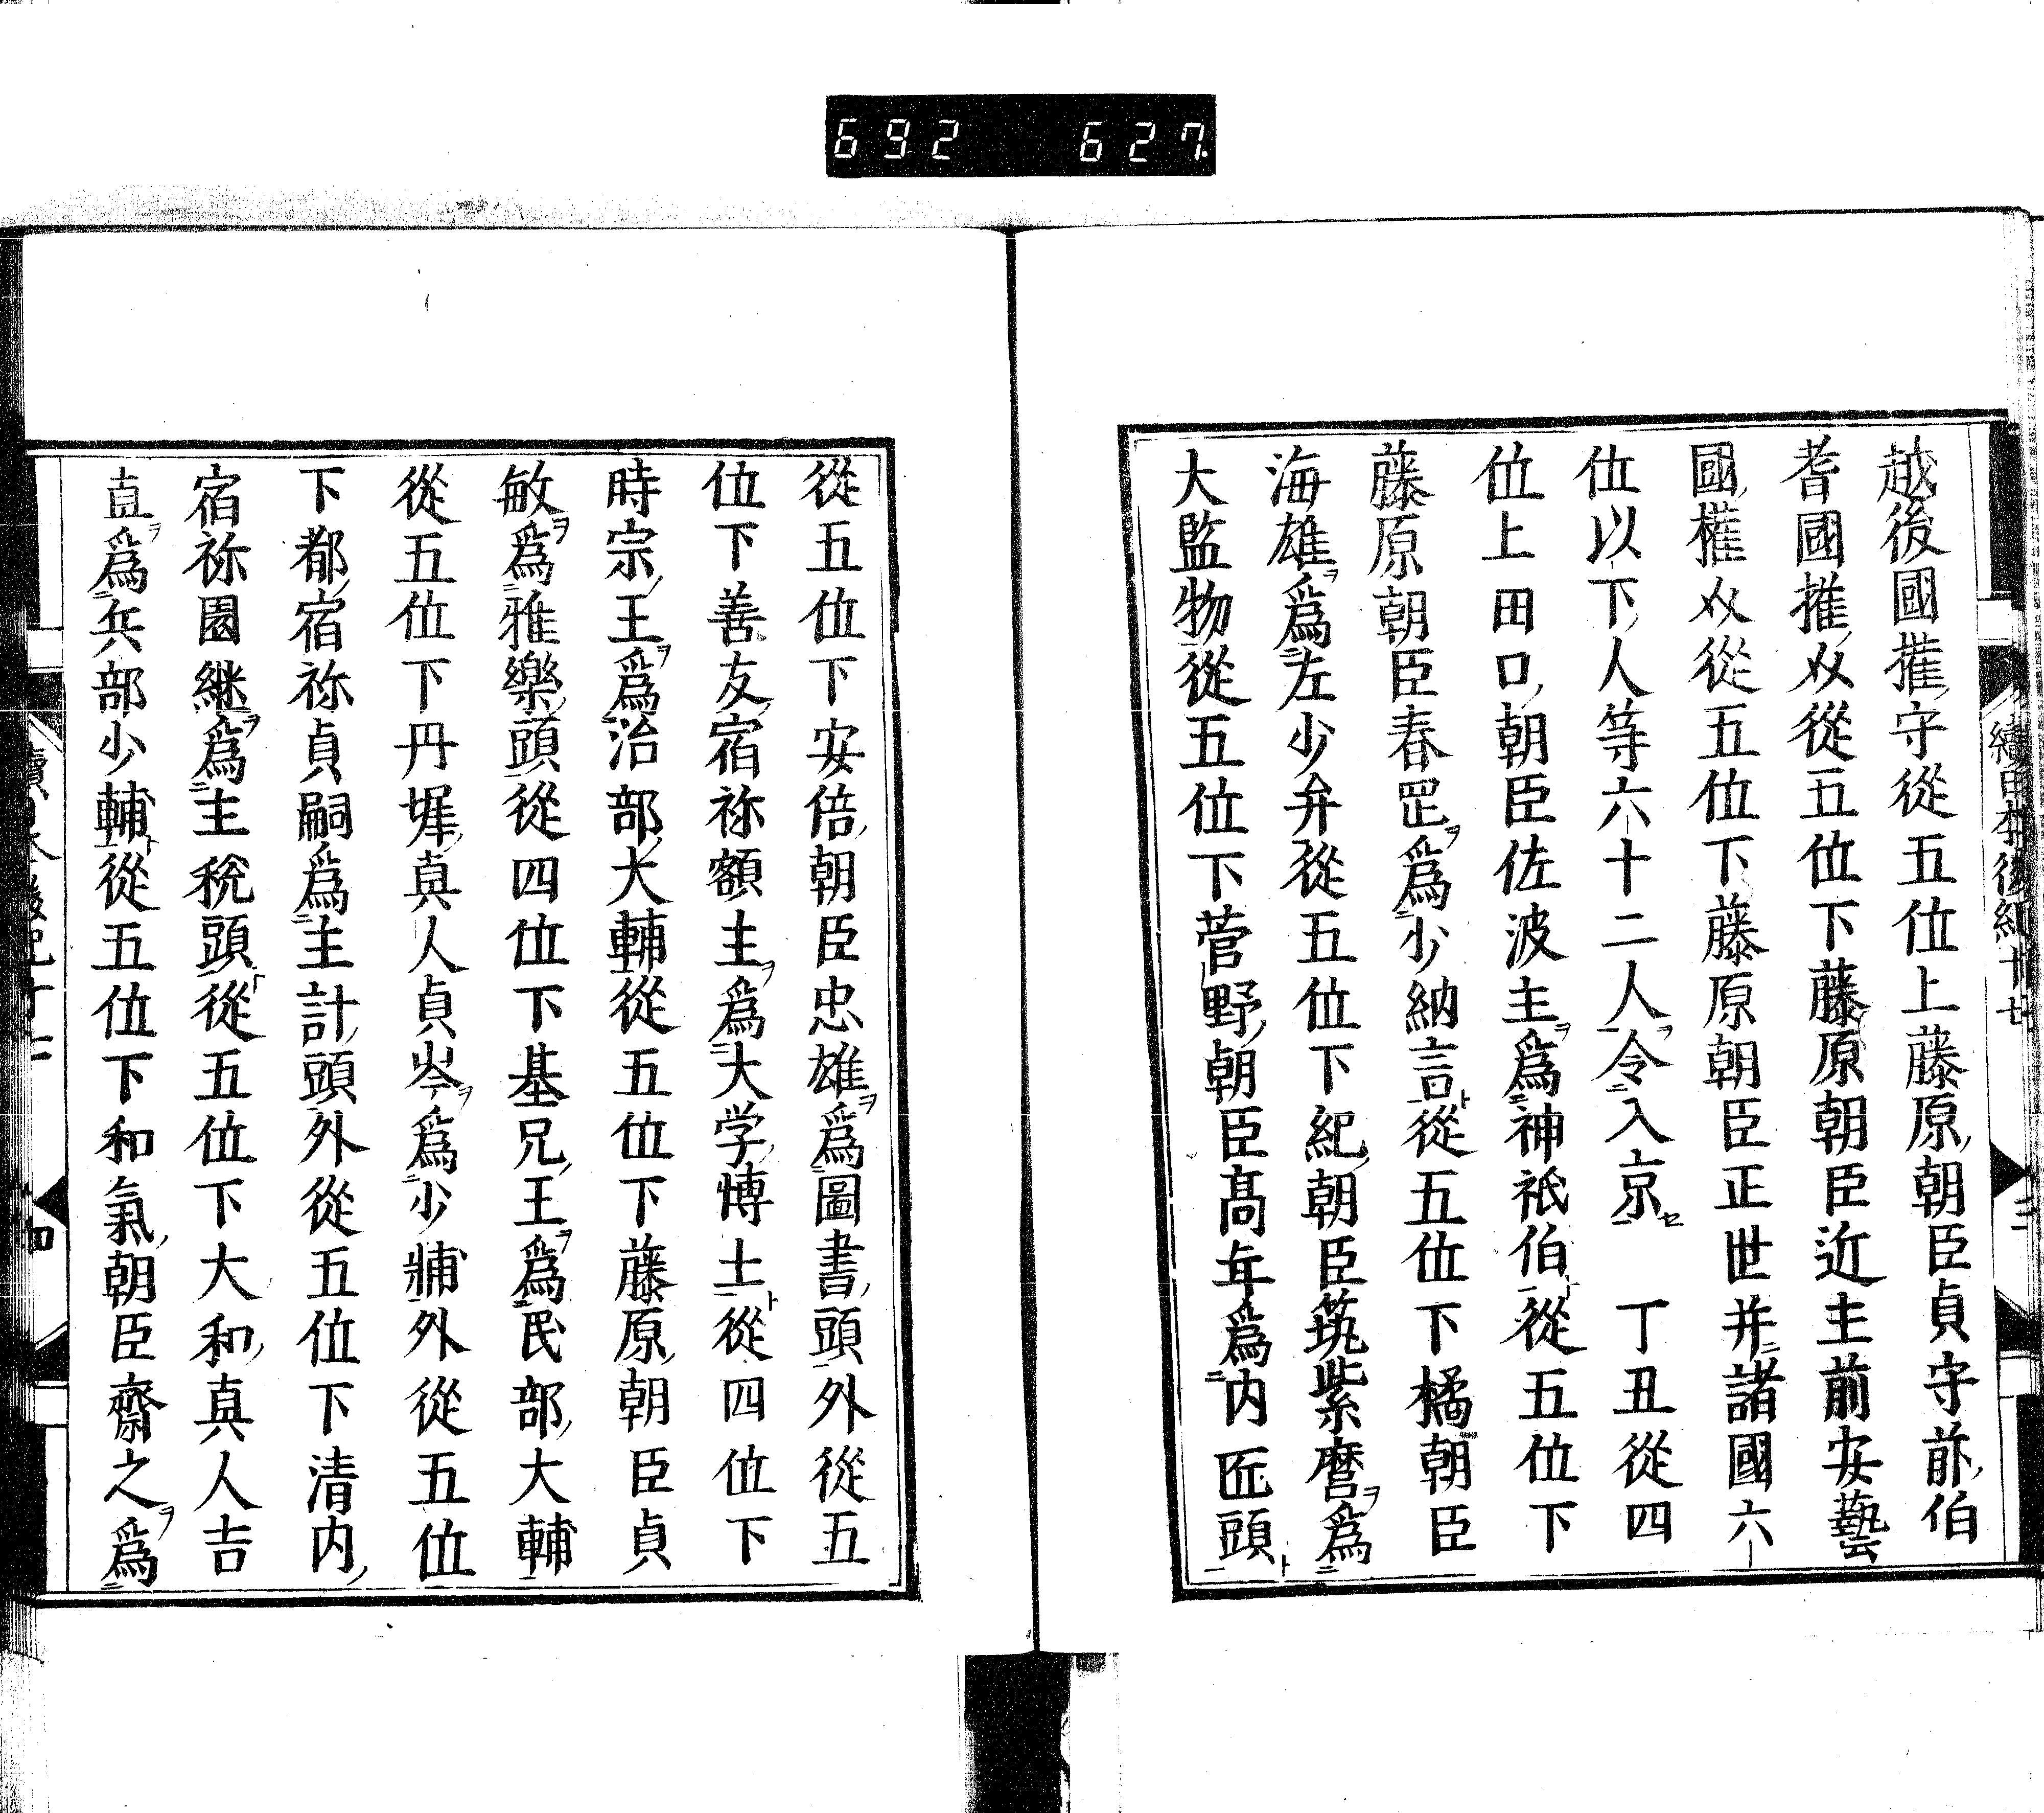 692 627.
續日本後紀十七 三
越後國權守從五位上藤原朝臣貞守前伯
耆國權介從五位下藤原朝臣近主前安藝
國權介從五位下藤原朝臣正世并諸國六
位以下人等六十二人令入京 丁丑從四
位上田口朝臣佐波主爲神祇伯從五位下
藤原朝臣春罡爲少納言從五位下橘朝臣
海雄爲左少弁從五位下紀朝臣筑紫麿爲
大監物從五位下菅野朝臣髙年爲内匠頭
從五位下安倍朝臣忠雄爲圖書頭外從五
位下善友宿祢額主爲大学博士從四位下
時宗王爲治部大輔從五位下藤原朝臣貞
敏爲雅樂頭從四位下基兄王爲民部大輔
從五位下丹墀真人貞岑爲少輔外從五位
下都宿祢貞嗣爲主計頭外從五位下清内
宿祢園継爲主稅頭從五位下大和真人吉
直爲兵部少輔從五位下和氣朝臣齋之爲
四